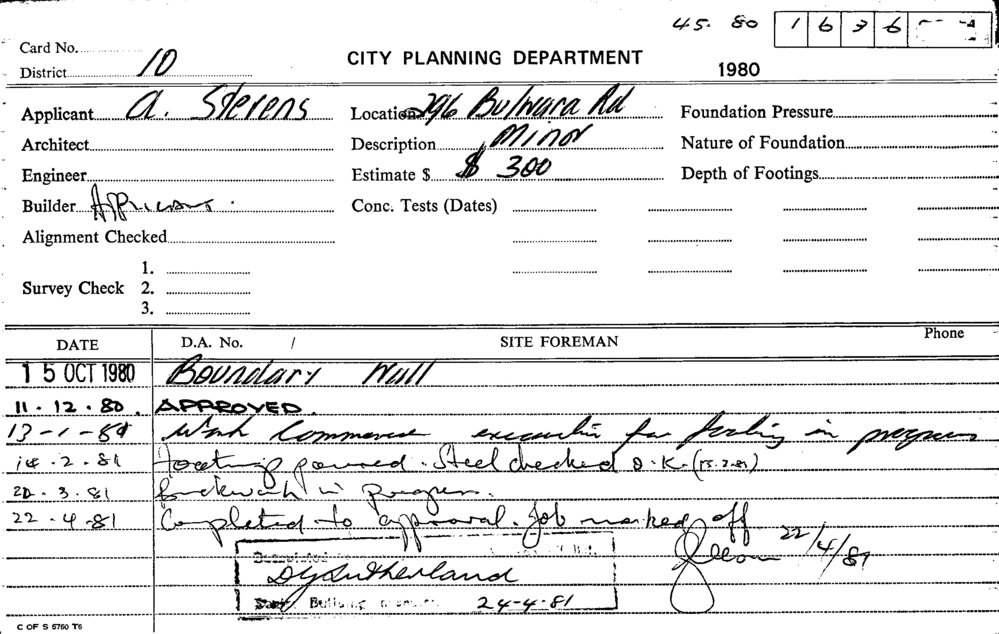 45. 80 1636
Card No.
District 10
CITY PLANNING DEPARTMENT
1980
Applicant A. Stevens
Location 296 Bulwara Rd
Foundation Pressure
Architect
Description Minor
Nature of Foundation
Engineer
Estimate $ $ 300
Depth of Footings
Builder Applicant.
Conc. Tests (Dates)
Alignment Checked
1.
Survey Check 2.
3.
DATE D.A. No. / SITE FOREMAN Phone
15 OCT 1980 Boundary Wall
11.12.80. APPROVED.
13-1-81 Work Commenced excavation for footing in progress
14.2.81 footings poured. Steel checked O.K. (13.2.81)
20.3.81 brickwork in progress.
22.4.81 Completed to approval. Job marked off
22/4/81
Completed
DG Sutherland
Building
24-4-81
C OF S 5760 T6